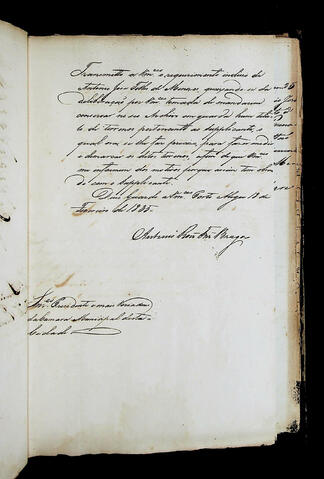 Transmetto a Vmces o requerimento incluso de
Antonio José Telles de Menezes, queixando-se da
deliberação por Vmces tomada de mandarem
conservar no seu Archivo em guarda hum titu-
lo de terrenos pertencente ao Supplicante, o
qual ora se lhe faz preciso, para fazer medir
e demarcar os ditos terrenos, afim de que Vm
me informem dos motivos porque assim tem obra-
do com o Supplicante.
Deos Guarde a Vmces Porto Alegre 18 de
Fevereiro de 1835.
Antonio Roiz Fez Braga
Snres Presidente e mais Vereadores
da Camara Municipal desta
Cidade